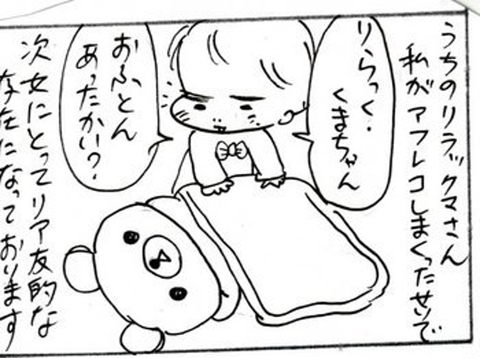 うちのリラックマさん
私がアフレコしまくったせいで
りらっく・
くまちゃん
おふとん
あったかい?
次女にとってリア友的な
存在になっております